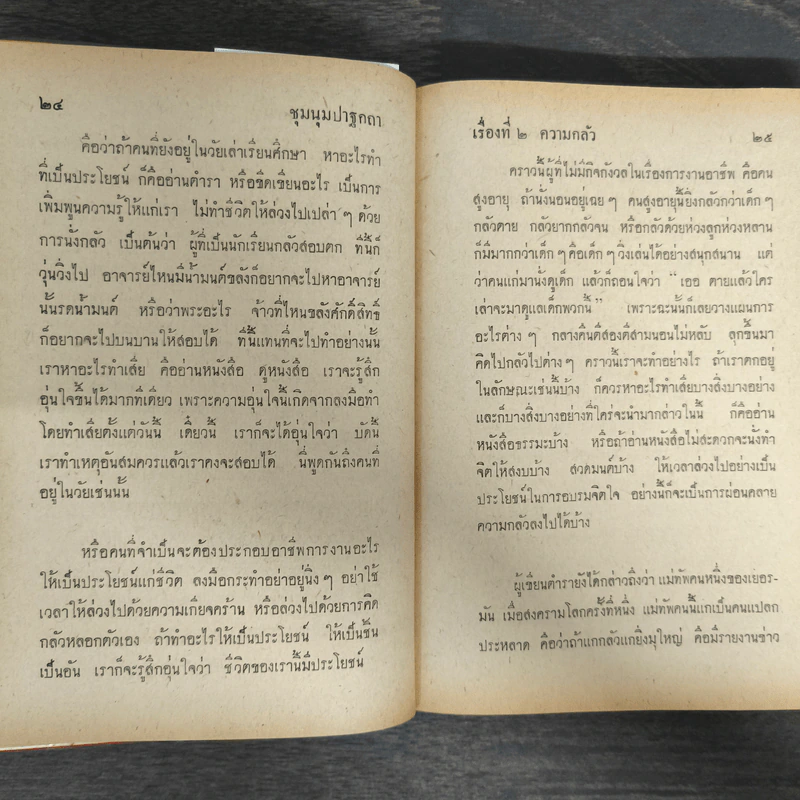 ๒๔
ชุมนุมปาฐกถา
คือว่าถ้าคนที่ยังอยู่ในวัยเล่าเรียนศึกษา หาอะไรทำ
ที่เป็นประโยชน์ ก็คืออ่านตำรา หรือขีดเขียนอะไร เป็นการ
เพิ่มพูนความรู้ให้แก่เรา ไม่ทำชีวิตให้ล่วงไปเปล่า ๆ ด้วย
การนั่งกลัว เป็นต้นว่า ผู้ที่เป็นนักเรียนกลัวสอบตก ทีนี้ก็
วุ่นวิ่งไป อาจารย์ไหนมีน้ำมนต์ขลังก็อยากจะไปหาอาจารย์
นั้นรดน้ำมนต์ หรือว่าพระอะไร จ้าวที่ไหนขลังศักดิ์สิทธิ์
ก็อยากจะไปบนบานให้สอบได้ ทีนี้แทนที่จะไปทำอย่างนั้น
เราหาอะไรทำเสีย คืออ่านหนังสือ ดูหนังสือ เราจะรู้สึก
อุ่นใจขึ้นได้มากทีเดียว เพราะความอุ่นใจนี้เกิดจากลงมือทำ
โดยทำเสียตั้งแต่วันนี้ เดี๋ยวนี้ เราก็จะได้อุ่นใจว่า บัดนี้
เราทำเหตุอันสมควรแล้วเราคงจะสอบได้ นี่พูดกันถึงคนที่
อยู่ในวัยเช่นนั้น
หรือคนที่จำเป็นจะต้องประกอบอาชีพการงานอะไร
ให้เป็นประโยชน์แก่ชีวิต ลงมือกระทำอย่าอยู่นิ่ง ๆ อย่าใช้
เวลาให้ล่วงไปด้วยความเกียจคร้าน หรือล่วงไปด้วยการคิด
กลัวหลอกตัวเอง ถ้าทำอะไรให้เป็นประโยชน์ ให้เป็นชิ้น
เป็นอัน เราก็จะรู้สึกอุ่นใจว่า ชีวิตของเรานี้มีประโยชน์
เรื่องที่ ๒ ความกลัว
๒๕
คราวนี้ผู้ที่ไม่มีกิจกังวลในเรื่องการงานอาชีพ คือคน
สูงอายุ ถ้านั่งนอนอยู่เฉย ๆ คนสูงอายุนี้ยิ่งกลัวกว่าเด็ก ๆ
กลัวตาย กลัวยากกลัวจน หรือกลัวด้วยห่วงลูกห่วงหลาน
ก็มีมากกว่าเด็ก ๆ คือเด็ก ๆ วิ่งเล่นได้อย่างสนุกสนาน แต่
ว่าคนแก่มานั่งดูเด็ก แล้วก็ถอนใจว่า "เออ ตายแล้วใคร
เล่าจะมาดูแลเด็กพวกนี้" เพราะฉะนั้นก็เลยวางแผนการ
อะไรต่าง ๆ กลางคืนตีสองตีสามนอนไม่หลับ ลุกขึ้นมา
คิดไปกลัวไปต่าง ๆ คราวนี้เราจะทำอย่างไร ถ้าเราตกอยู่
ในลักษณะเช่นนี้บ้าง ก็ควรหาอะไรทำเสียบางสิ่งบางอย่าง
และก็บางสิ่งบางอย่างที่ใคร่จะนำมากล่าวในนี้ ก็คืออ่าน
หนังสือธรรมะบ้าง หรือถ้าอ่านหนังสือไม่สะดวกจะนั่งทำ
จิตให้สงบบ้าง สวดมนต์บ้าง ให้เวลาล่วงไปอย่างเป็น
ประโยชน์ในการอบรมจิตใจ อย่างนี้ก็จะเป็นการผ่อนคลาย
ความกลัวลงไปได้บ้าง
ผู้เขียนตำรายังได้กล่าวถึงว่า แม่ทัพคนหนึ่งของเยอร-
มัน เมื่อสงครามโลกครั้งที่หนึ่ง แม่ทัพคนนี้แกเป็นคนแปลก
ประหลาด คือว่าถ้าแกกลัวแกยิ่งมุใหญ่ คือมีรายงานข่าว